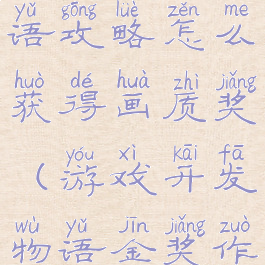 yǔ gōng lüè zěn me
语攻略怎么
huò dé huà zhì jiǎng
获得画质奖
yóu xì kāi fā
（游戏开发
wù yǔ jīn jiǎng zuò
物语金奖作